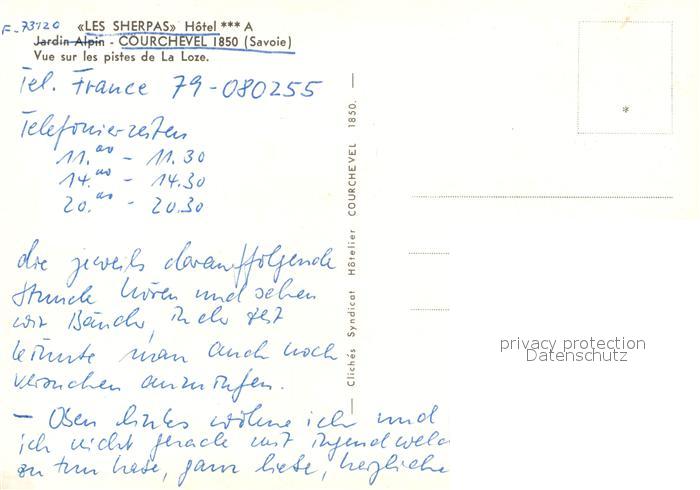 F-73120 «LES SHERPAS» Hôtel *** A
Jardin Alpin - COURCHEVEL 1850 (Savoie)
Vue sur les pistes de La Loze.
Tel. France 79-080255
Telefonierzeiten
11.00 - 11.30
14.00 - 14.30
20.00 - 20.30
die jeweils darauffolgende
Stunde hören und sehen
wir Bänder, in der Zeit
könnte man auch noch
versuchen anzurufen.
- Oben links wohne ich und
ich nicht gerade mit irgendwelc
zu tun habe, ganz liebe, herzliche
Clichés Syndicat Hôtelier COURCHEVEL 1850. —
*
privacy protection
Datenschutz